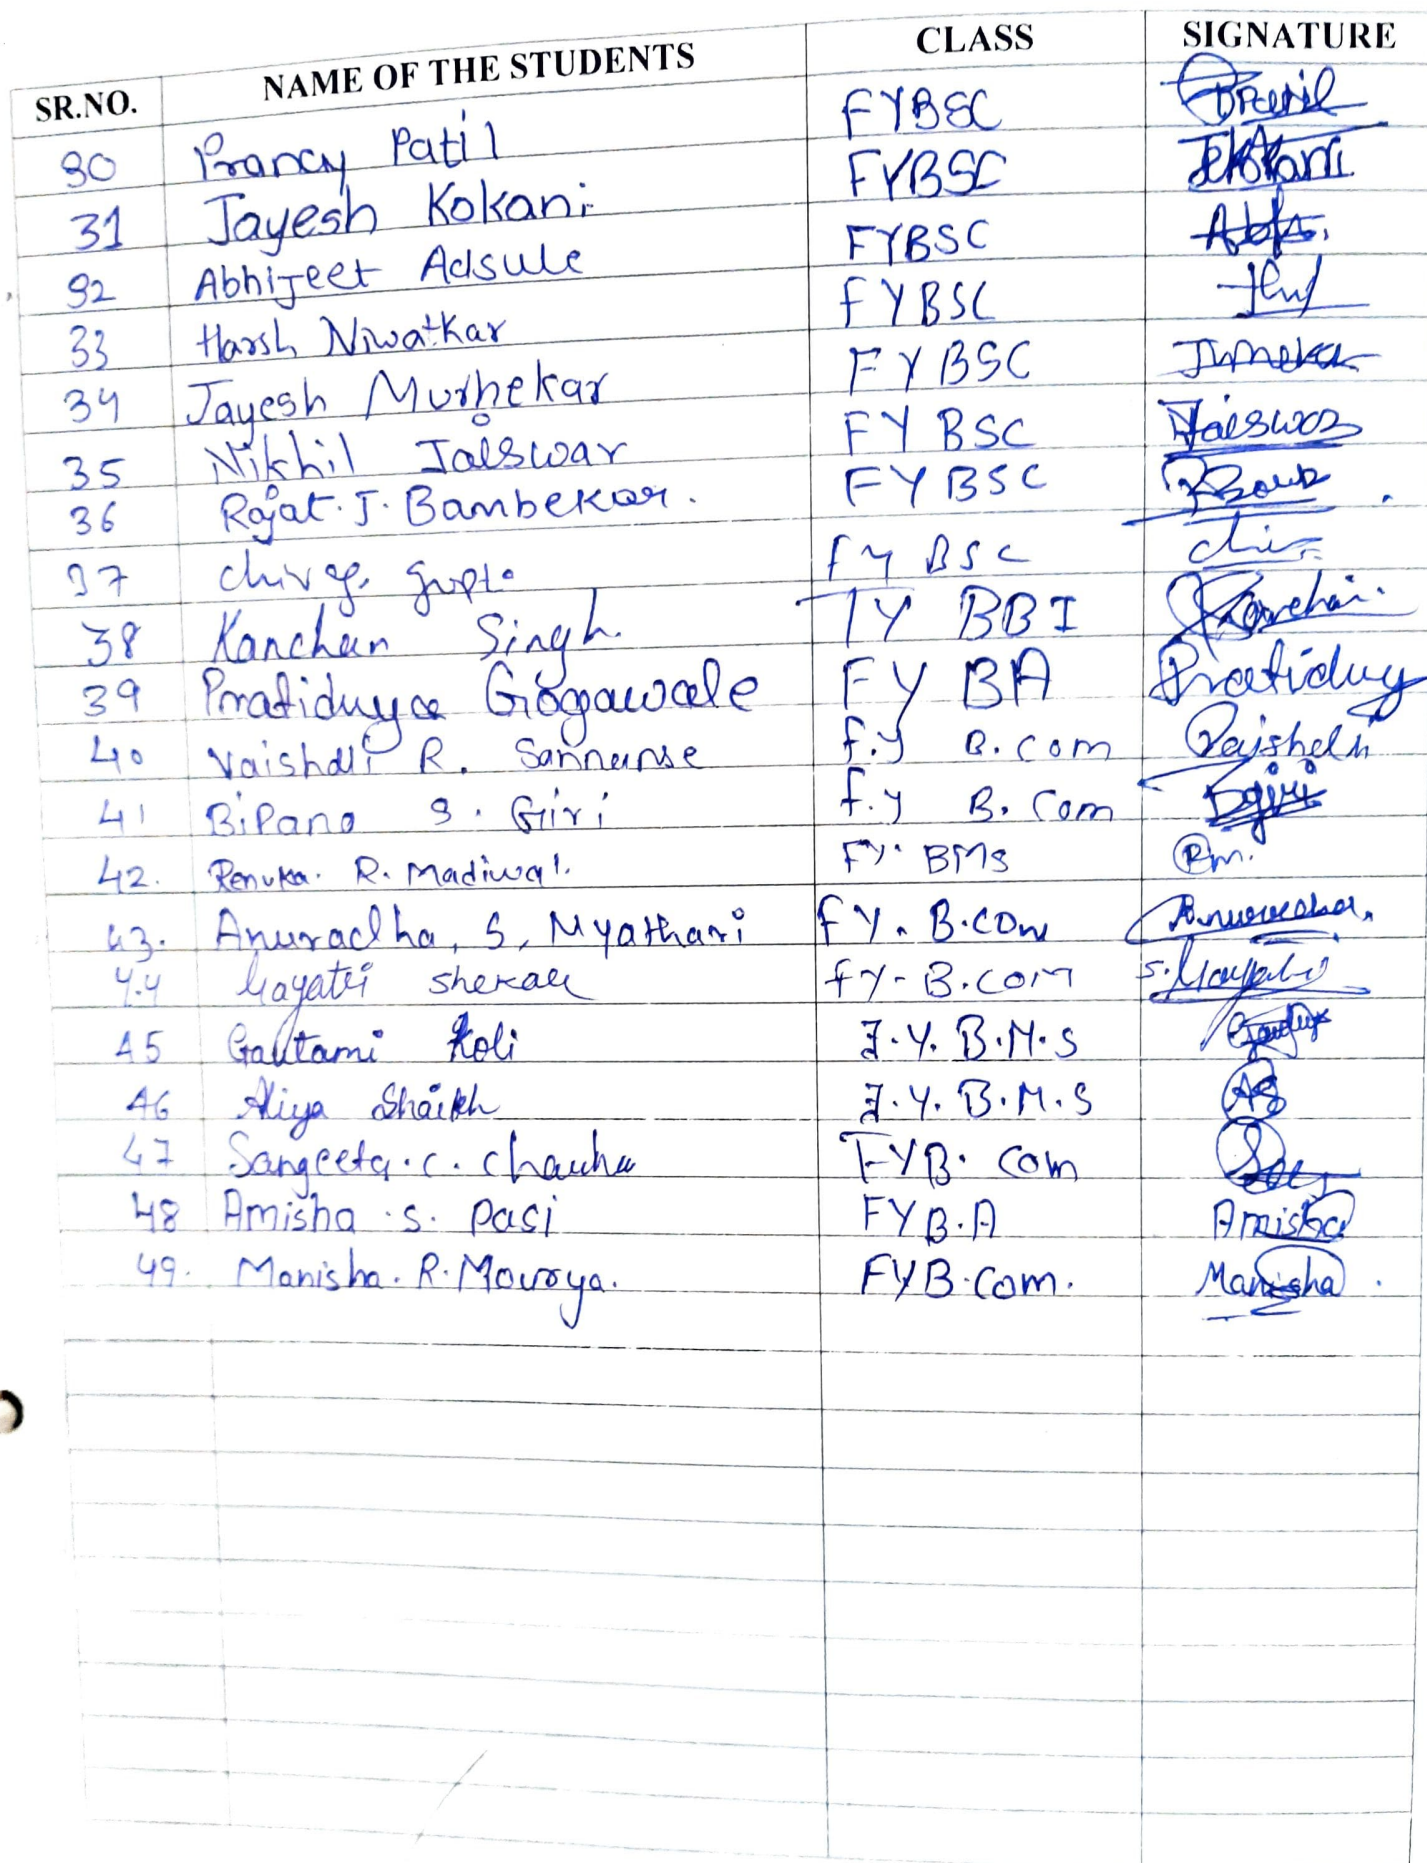 SR.NO. NAME OF THE STUDENTS CLASS SIGNATURE
30 Prancy Patil FYBSC
31 Jayesh Kokani FYBSC JKokani
32 Abhijeet Adsule FYBSC
33 Harsh Niwatkar FYBSC
34 Jayesh Murhekar FYBSC
35 Nikhil Jaiswar FYBSC NJaiswar
36 Rajat. J. Bambekar. FYBSC
37 chirag gupta FY BSC
38 Kanchan Singh. TY BBI Kanchan.
39 Pratiduya Gogawale FY BA Pratiduy
40 Vaishali R. Sannanse f.y B.com Vaishali
41 Bipana S. Giri f.y B. Com Bgiri
42. Renuka. R. Madiwal. FY. BMS Rm.
43. Anuradha, S, Myathari FY. B.com Anuradha.
44 Gayatri shekar fy-B.COM S.Gayatri
45 Gautami Koli F.Y. B.M.S
46 Aliya Shaikh F.Y. B.M.S AS
47 Sangeeta.C. Chauha FYB. Com
48 Amisha .S. Pasi FYB.A Amisha
49. Manisha. R. Mourya. FYB.Com. Manisha.